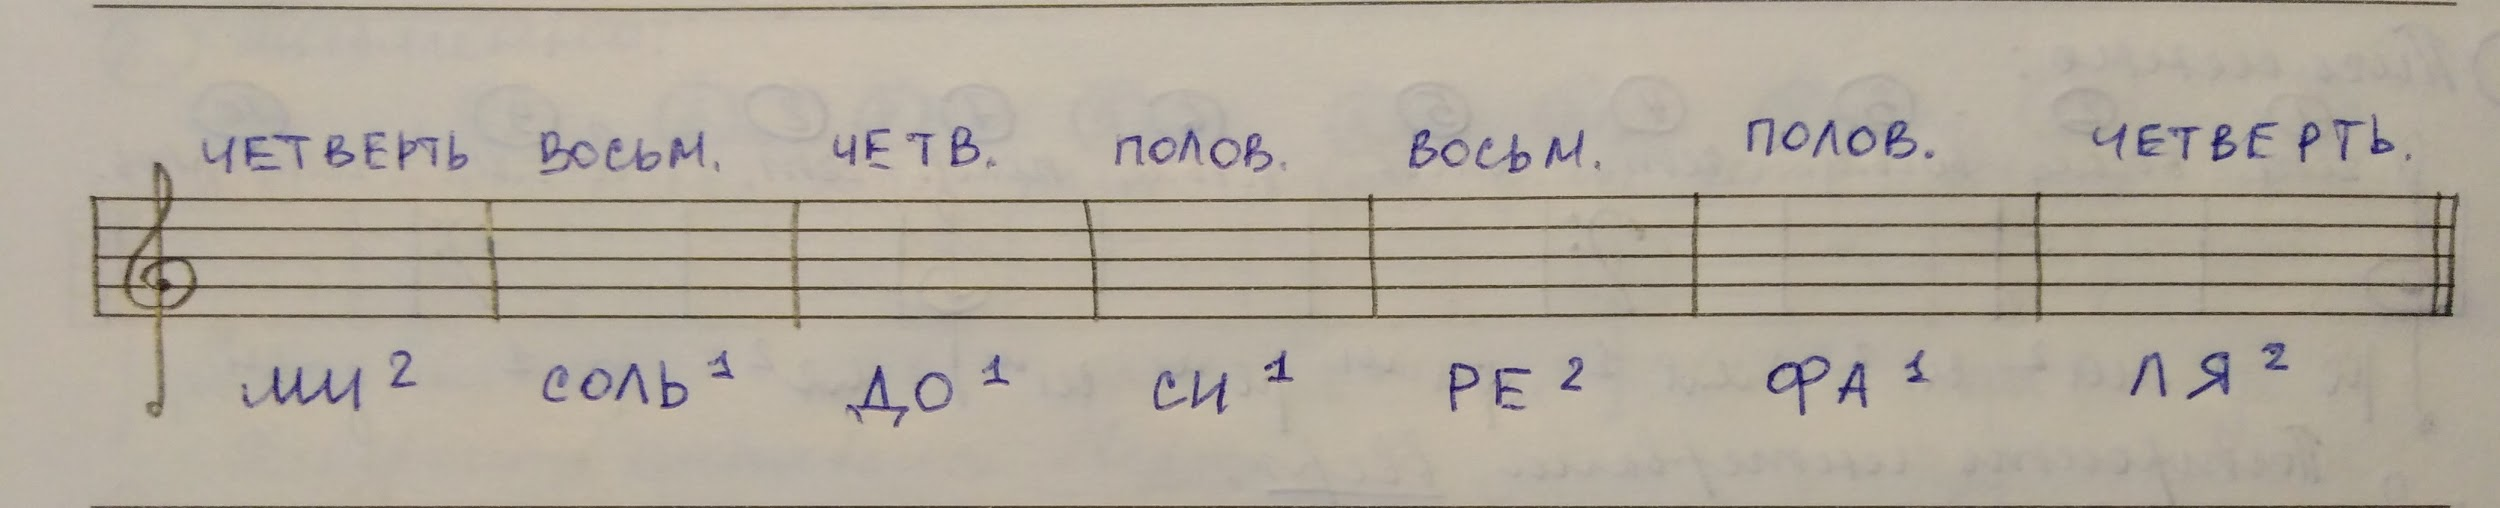 ЧЕТВЕРТЬ ВОСЬМ. ЧЕТВ. ПОЛОВ. ВОСЬМ. ПОЛОВ. ЧЕТВЕРТЬ.
МИ ² СОЛЬ ¹ ДО ¹ СИ ¹ РЕ ² ФА ¹ ЛЯ ²